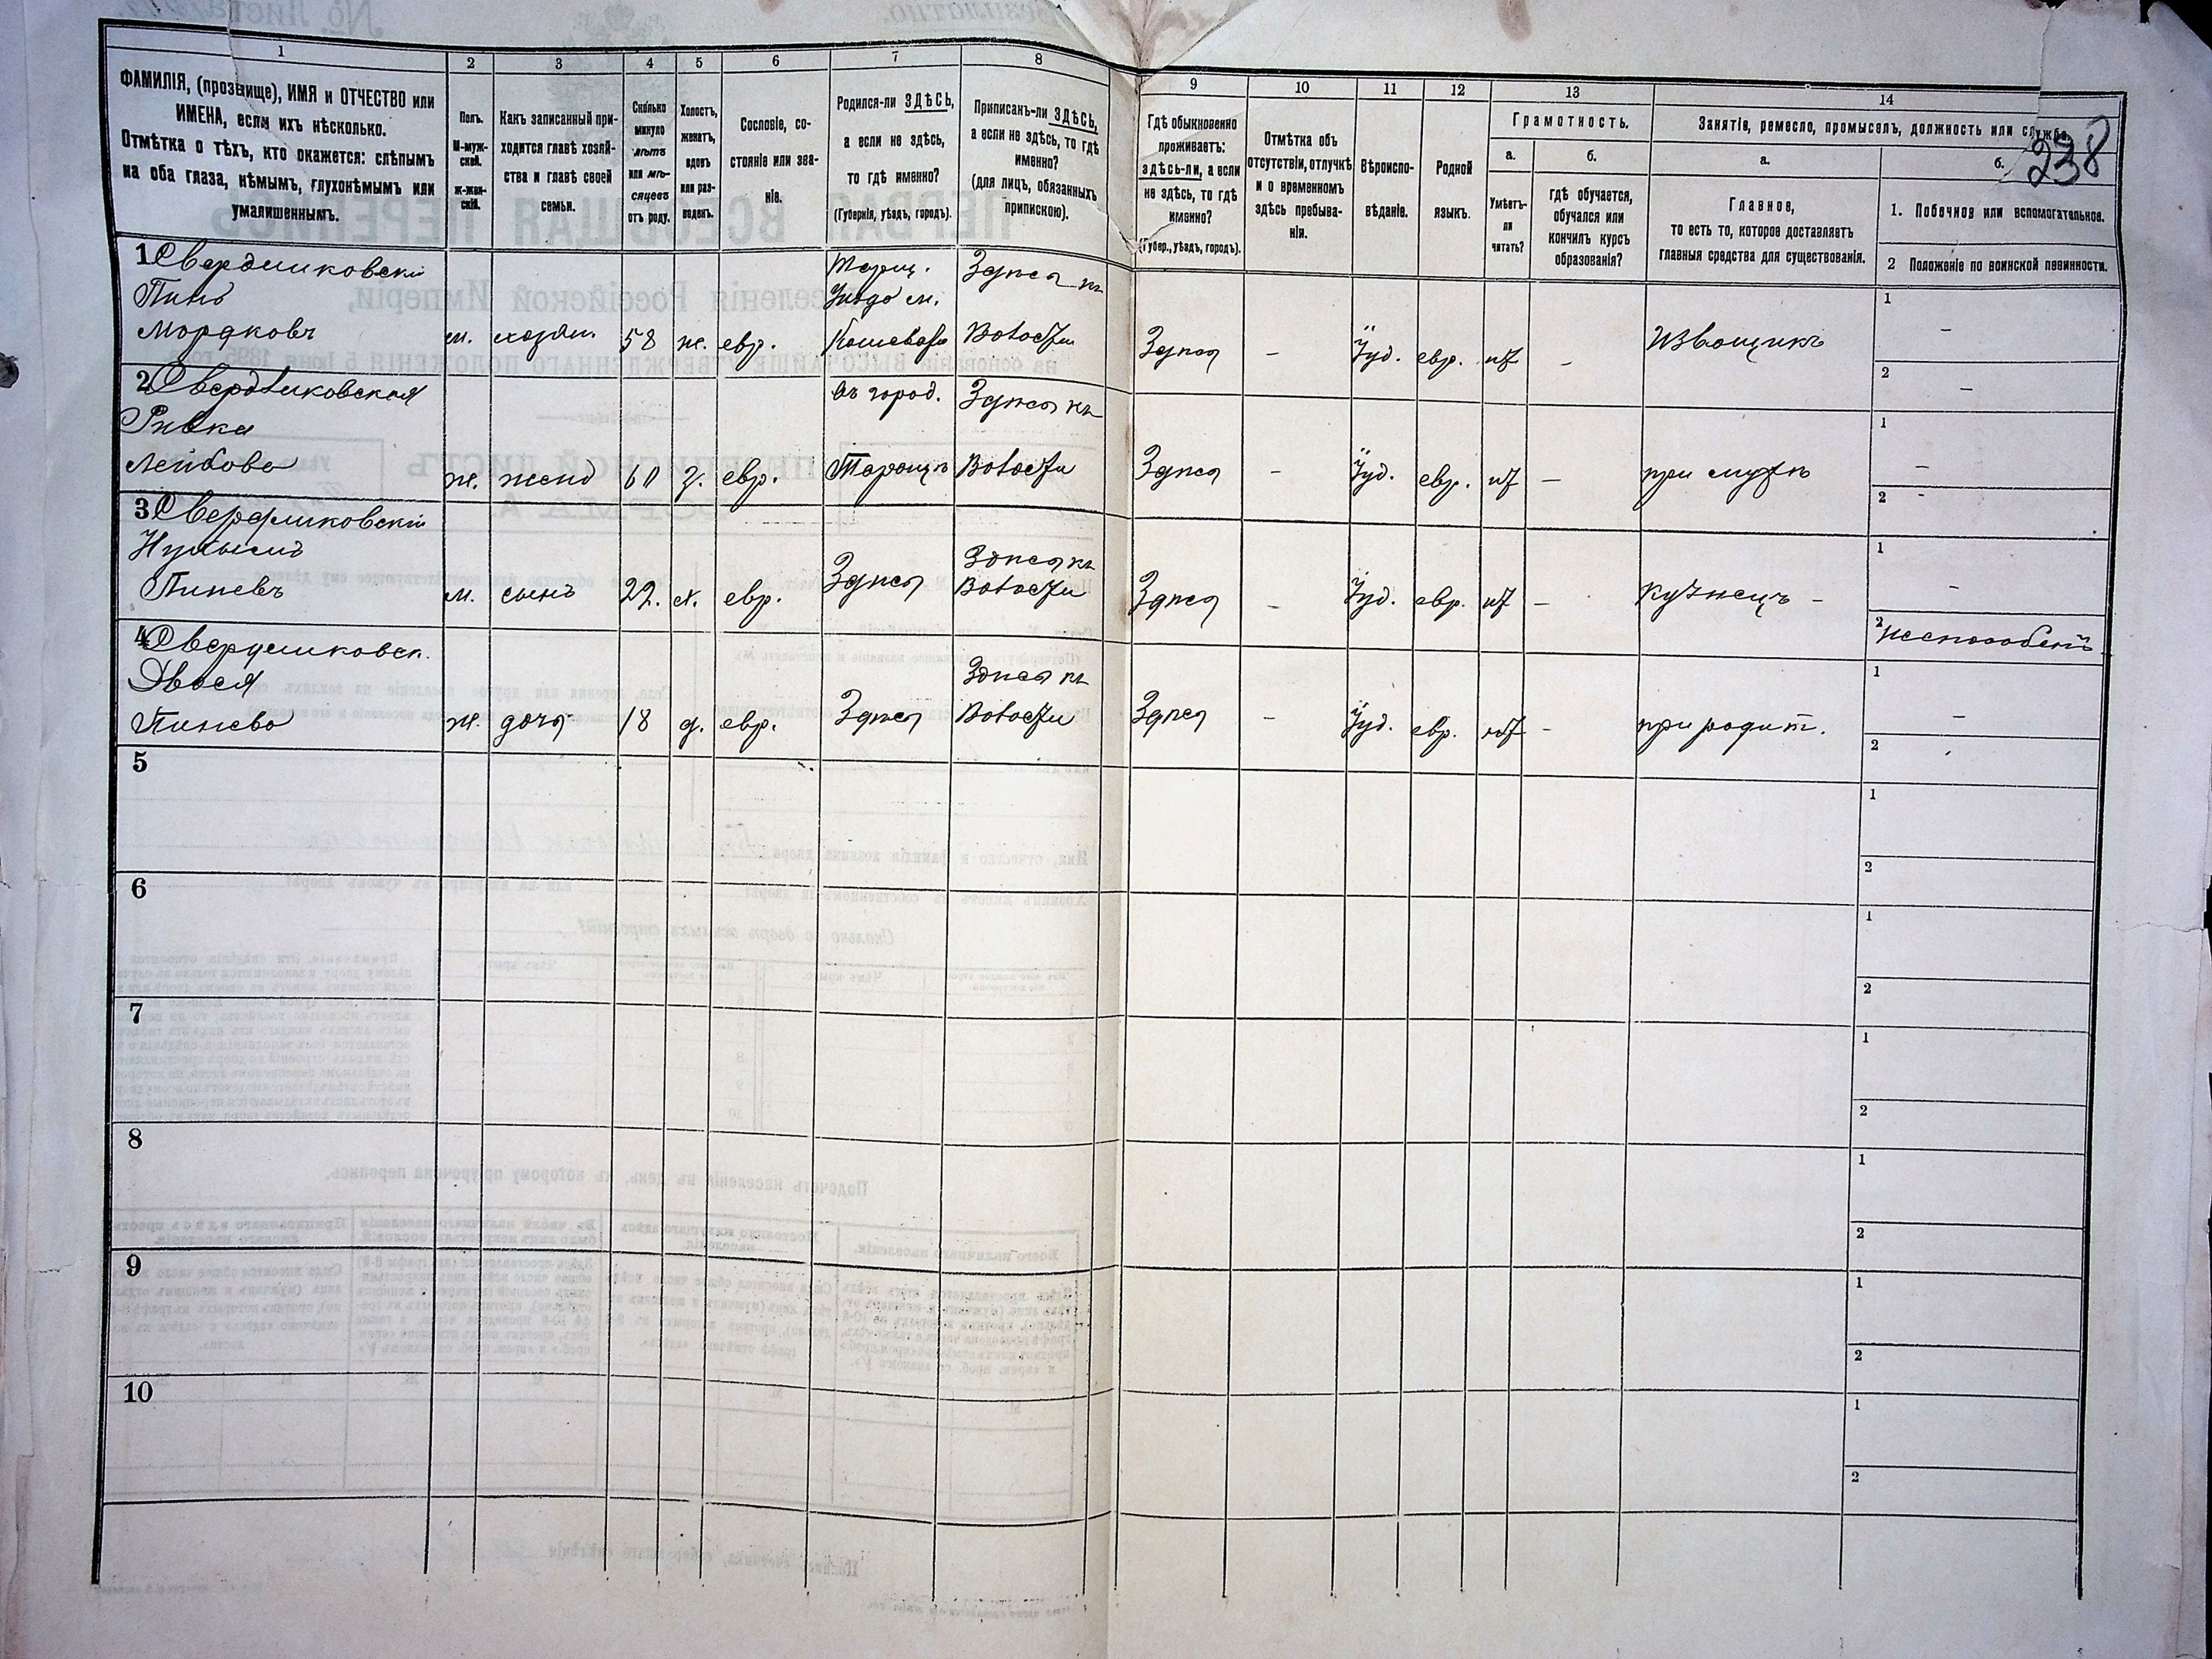 1
2
3
4
5
6
7
8
9
10
11
12
13
14
ФАМИЛІЯ, (прозвище), ИМЯ и ОТЧЕСТВО или
ИМЕНА, если ихъ нѣсколько.
Отмѣтка о тѣхъ, кто окажется: слѣпымъ
на оба глаза, нѣмымъ, глухонѣмымъ или
умалишеннымъ.
Полъ.
М-муж-
ской.
ж-жен-
скій.
Какъ записанный при-
ходится главѣ хозяй-
ства и главѣ своей
семьи.
Сколько
минуло
лѣтъ
или мѣ-
сяцевъ
отъ роду.
Холостъ,
женатъ,
вдовъ
или раз-
веденъ.
Сословіе, со-
стояніе или зва-
ніе.
Родился-ли ЗДѢСЬ,
а если не здѣсь,
то гдѣ именно?
(Губернія, уѣздъ, городъ).
Приписанъ-ли ЗДѢСЬ,
а если не здѣсь, то гдѣ
именно?
(для лицъ, обязанныхъ
припискою).
Гдѣ обыкновенно
проживаетъ:
здѣсь-ли, а если
не здѣсь, то гдѣ
именно?
(Губер., уѣздъ, городъ).
Отмѣтка объ
отсутствіи, отлучкѣ
и о временномъ
здѣсь пребыва-
ніи.
Вѣроиспо-
вѣданіе.
Родной
языкъ.
Грамотность.
а.
Умѣетъ-
ли
читать?
б.
гдѣ обучается,
обучался или
кончилъ курсъ
образованія?
Занятіе, ремесло, промыселъ, должность или служба.
238
а.
Главное,
то есть то, которое доставляетъ
главныя средства для существованія.
б.
1. Побочное или вспомогательное.
2 Положеніе по воинской повинности.
1 Свердликовскій
Пинь
Мордковъ
м. хозяи. 58 ж. евр.
Таращ.
Уѣзда м.
Здѣсь къ
Волости
Здѣсь – іуд. евр. нѣт –
Извощикъ
1 –
2 –
2 Свердликовская
Ривка
Лейбова
ж. жена 60 з. евр.
въ город.
Таращѣ
Здѣсь къ
Волости
Здѣсь – іуд. евр. нѣт –
при мужѣ
1 –
2 -
3 Свердликовскій
Нухимъ
Пиневъ
м. сынъ 22. х. евр.
Здѣсь
Здѣсь къ
Волости
Здѣсь – іуд. евр. нѣт –
кузнецъ –
1 –
2 неспособенъ
4 Свердликовск.
Двося
Пинева
ж. дочь 18 д. евр.
Здѣсь
Здѣсь къ
Волости
Здѣсь – іуд. евр. нѣт -
при родит.
1 –
2
5
1
2
6
1
2
7
1
2
8
1
2
9
1
2
10
1
2